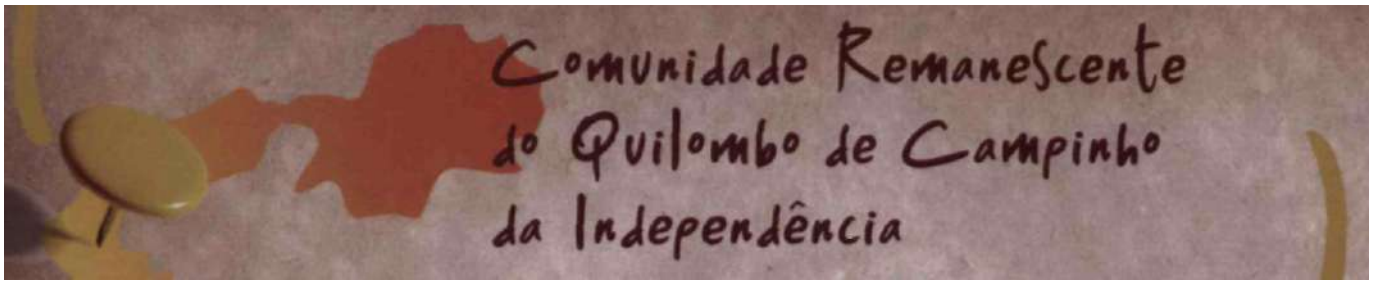 Comunidade Remanescente
do Quilombo de Campinho
da Independência